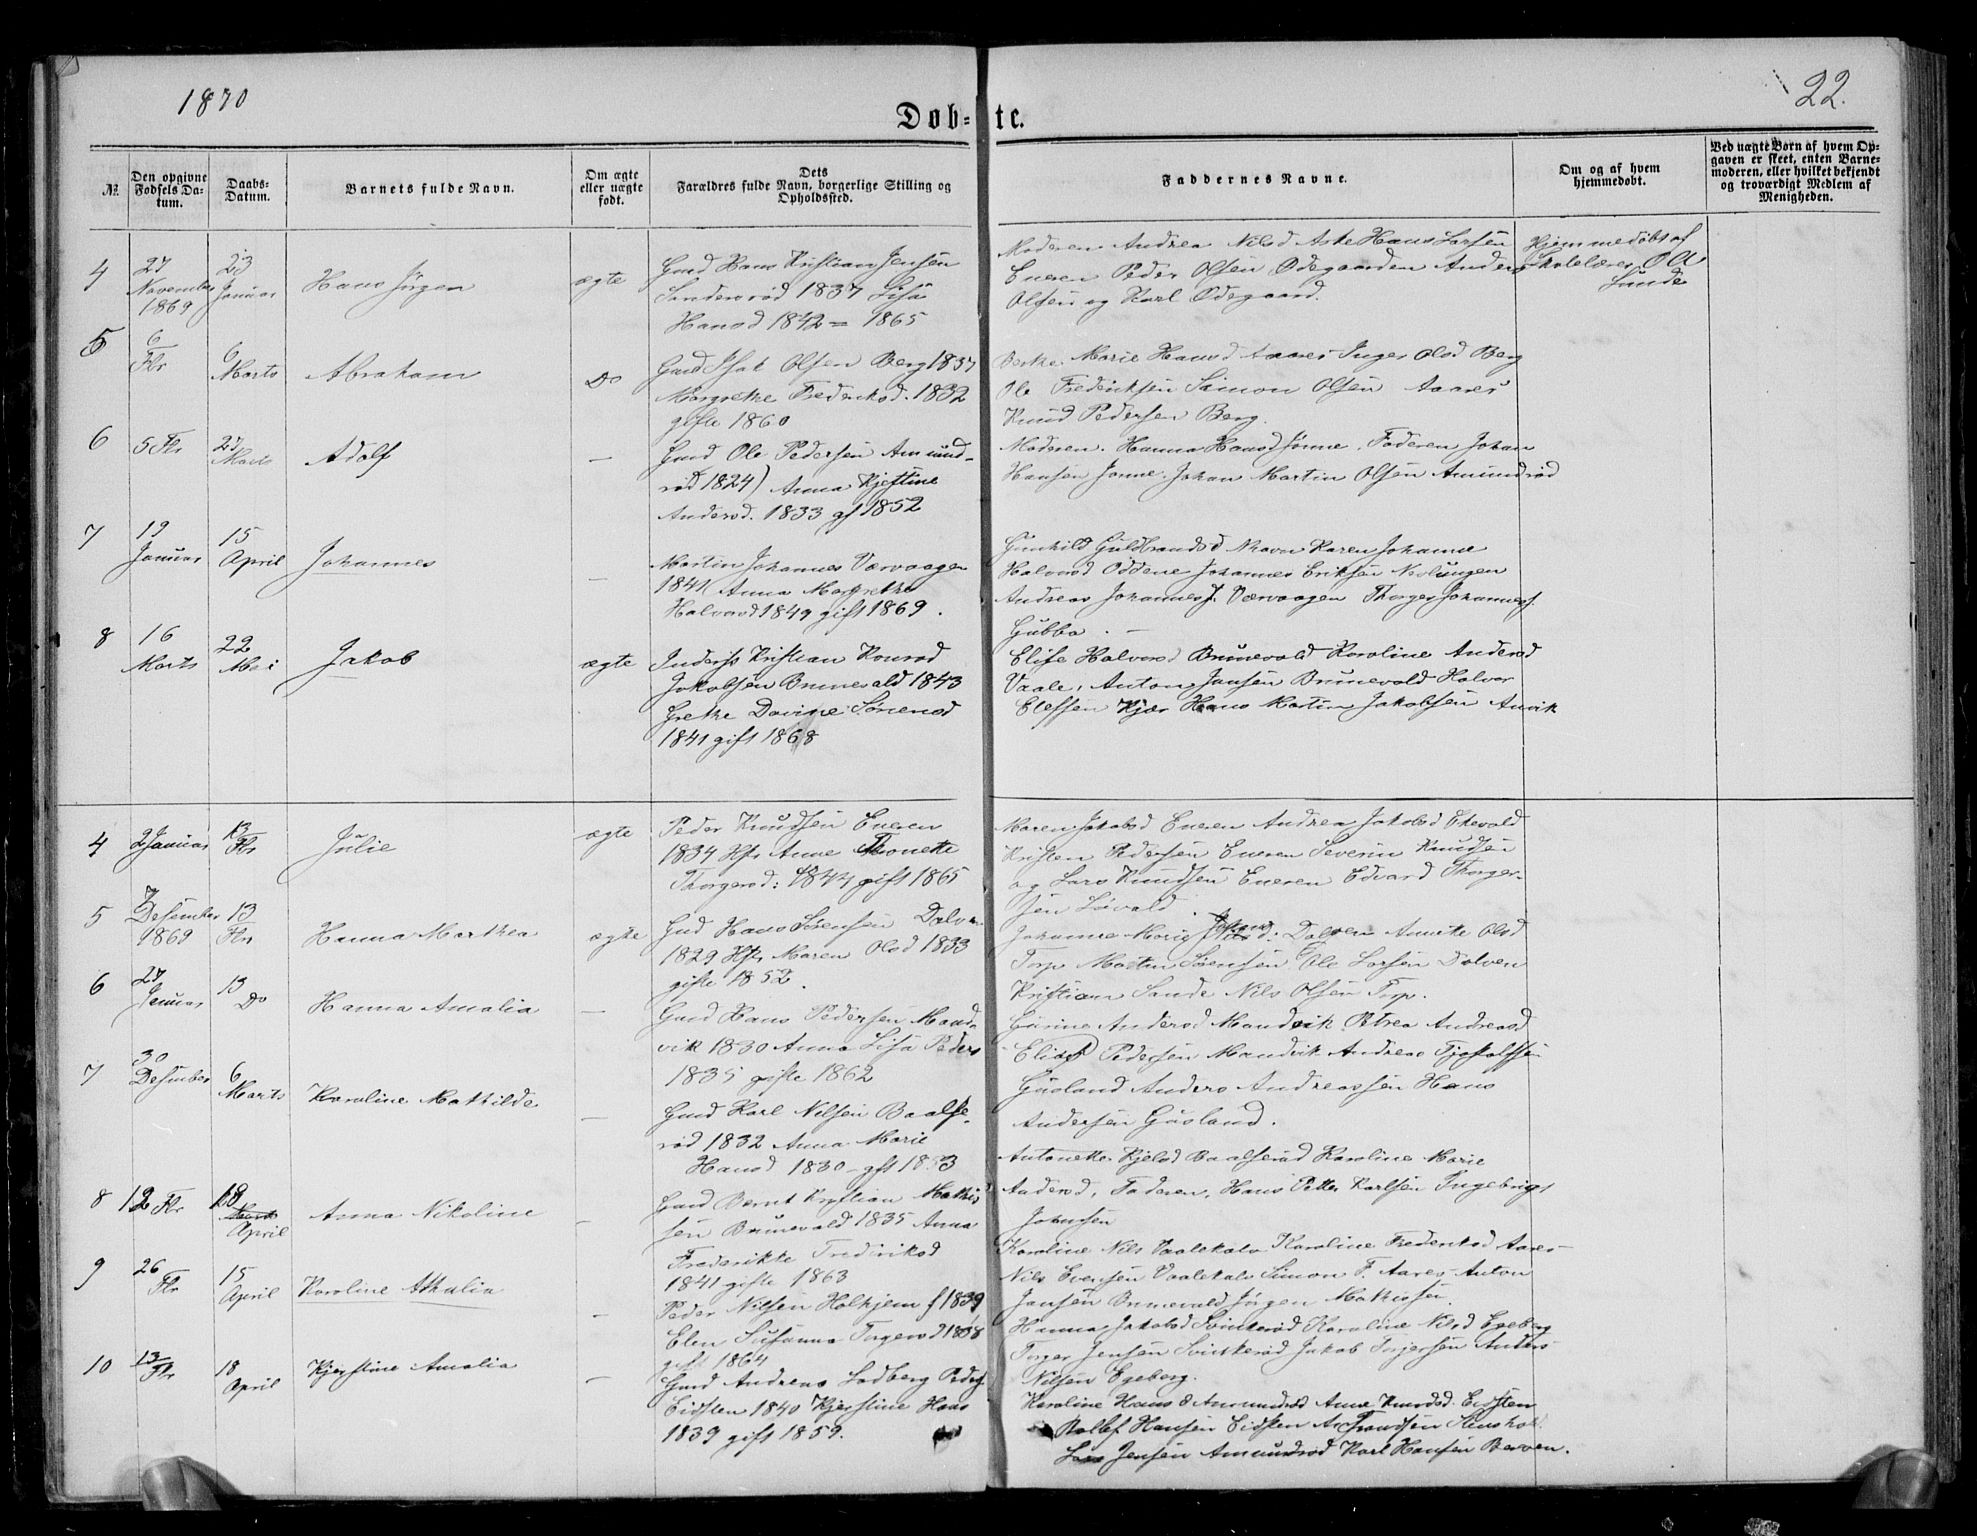 1870
22.
Døb-te.
№
Den opgivne Fødsels Datum.
Daabs-Datum.
Barnets fulde Navn.
Om ægte eller uægte født.
Dets Forældres fulde Navn, borgerlige Stilling og Opholdssted.
Faddernes Navne.
Om og af hvem hjemmedøbt.
Ved uægte Børn af hvem Opgaven er skeet, enten Barnemoderen, eller hvilket bekjendt og troværdigt Medlem af Menigheden.
4
27 November 1869
23 Januar
Hans Jörgen
ægte
Gmd Hans Kristian Jensen
Sandersröd 1837 Lisa
Hansd 1842 = 1865
Moderen Andrea Nilsd Aske Hans Larsen
Eneren Peder Olsen Ödegaarden Anders
Olsen og Karl Ödegaard.
Hjemmedöbt af
Skolelærer O A
Sunde
5
6 Fbr
6 Marts
Abraham
Do
Gmd Isak Olsen Berg 1837
Margrethe Frederiksd. 1832
gifte 1860
Marie Hansd Aarær Inger Olsd Berg
Ole Frederiksen Simon Olsen Aarær
Knud Pedersen Berg.
6
5 Fbr
27 Marts
Adolf
—
Gmd Ole Pedersen Amund-
röd 1824) Anna Kjestine
Andersd. 1833 gf 1852
Moderen. Hanna Hansd Jonne. Faderen Johan
Hansen Jonne. Johan Martin Olsen Amundröd
7
19 Januar
15 April
Johannes
—
Martin Johannes Værvaagen
1841 Anna Margrethe
Halvorsd 1849 gift 1869.
Gunhild Guldbrandsd Nhavn Karen Johanne
Halvorsd Oddene Johannes Eriksen Nevlungen
Andreas Johanness. Værvaagen Thorger Johanness.
Gubba. —
8
16 Marts
22 Mai
Jakob
ægte
Inderst Kristian Konrad
Jakobsen Brunevald 1843
Grethe Davine Sörensd
1841 gift 1868
Elise Halvorsd Brunevald Karoline Andersd
Vaale. Anton Jansen Brunevald Halvor
Elefsen Kjær Hans Martin Jakobsen Anvik
4
2 Januar
13 Fbr
Julie
ægte
Peder Knudsen Eneren
1834 Hfr Anne Thonette
Thorgersd: 1844 gift 1865
Maren Jakobsd Eneren Andrea Jakobsd
Kristen Pedersen Eneren Severin Knudsen
og Lars Knudsen Eneren Edvard Thorger-
sen Lövald.
5
7 Desember 1869
13 Fbr
Hanna Marthea
ægte
Gmd Hans Sörensen Dolven
1829 Hfr Maren Olsd 1833
gifte 1852.
Johanne Marie Johansd. Dolven Annette Olsd
Torp Martin Sörensen Ole Larsen Dolven
Kristian Sande Nils Olsen Torp.
6
27 Januar
13 Do
Hanna Amalia
—
Gmd Hans Pedersen Mand-
vik 1830 Anna Lisa Peders
1835 gifte 1862
Gurine Andersd Mandvik Petrea Andreasd
Elias Pedersen Mandvik Andreas
Gusland Anders Andreassen Hans
Andersen Gusland.
7
30 Desember
6 Marts
Karoline Mathilde
—
Gmd Karl Nilsen Baalse-
röd 1832 Anna Marie
Hansd 1830 gft 1853
Antonette Kjelsd Baalseröd Karoline Marie
Andersd. Faderen. Hans Petter Karlsen Ingebrigt
Johnsen
8
12 Fbr
18 April
Anna Nikoline
—
Gmd Bernt Kristian Mathis
sen Brunevald 1835 Anna
Frederikke Frederiksd
1841 gifte 1863
Karoline Nils Vaalekals Karoline Frederiksd Aarær
Nils Evensen Vaalekals Simon F. Aarær Anton
Jansen Brunevald Jörgen Mathissen
9
26 Fbr
15 April
Karoline Athalia
—
Peder Nilsen Holkjem f 1839
Elen Susanna Torgersd 1838
gift 1864
Hanna Jakobsd Svinkeröd Karoline Nilsd Egeberg
Torger Jensen Svinkeröd Jakob Torjersen Anders
Nilsen Egeberg.
10
13 Fbr
18 April
Kjerstine Amalia
—
Gmd Andreas Lodberg Peders
Eidsten 1840 Kjerstine Hans
1839 gift 1859.
Karoline Hansd Amundröd Anne Knudsd Eidsten
Rollef Hansen Eidsten
Lars Jensen Amundröd Karl Hansen Berven.